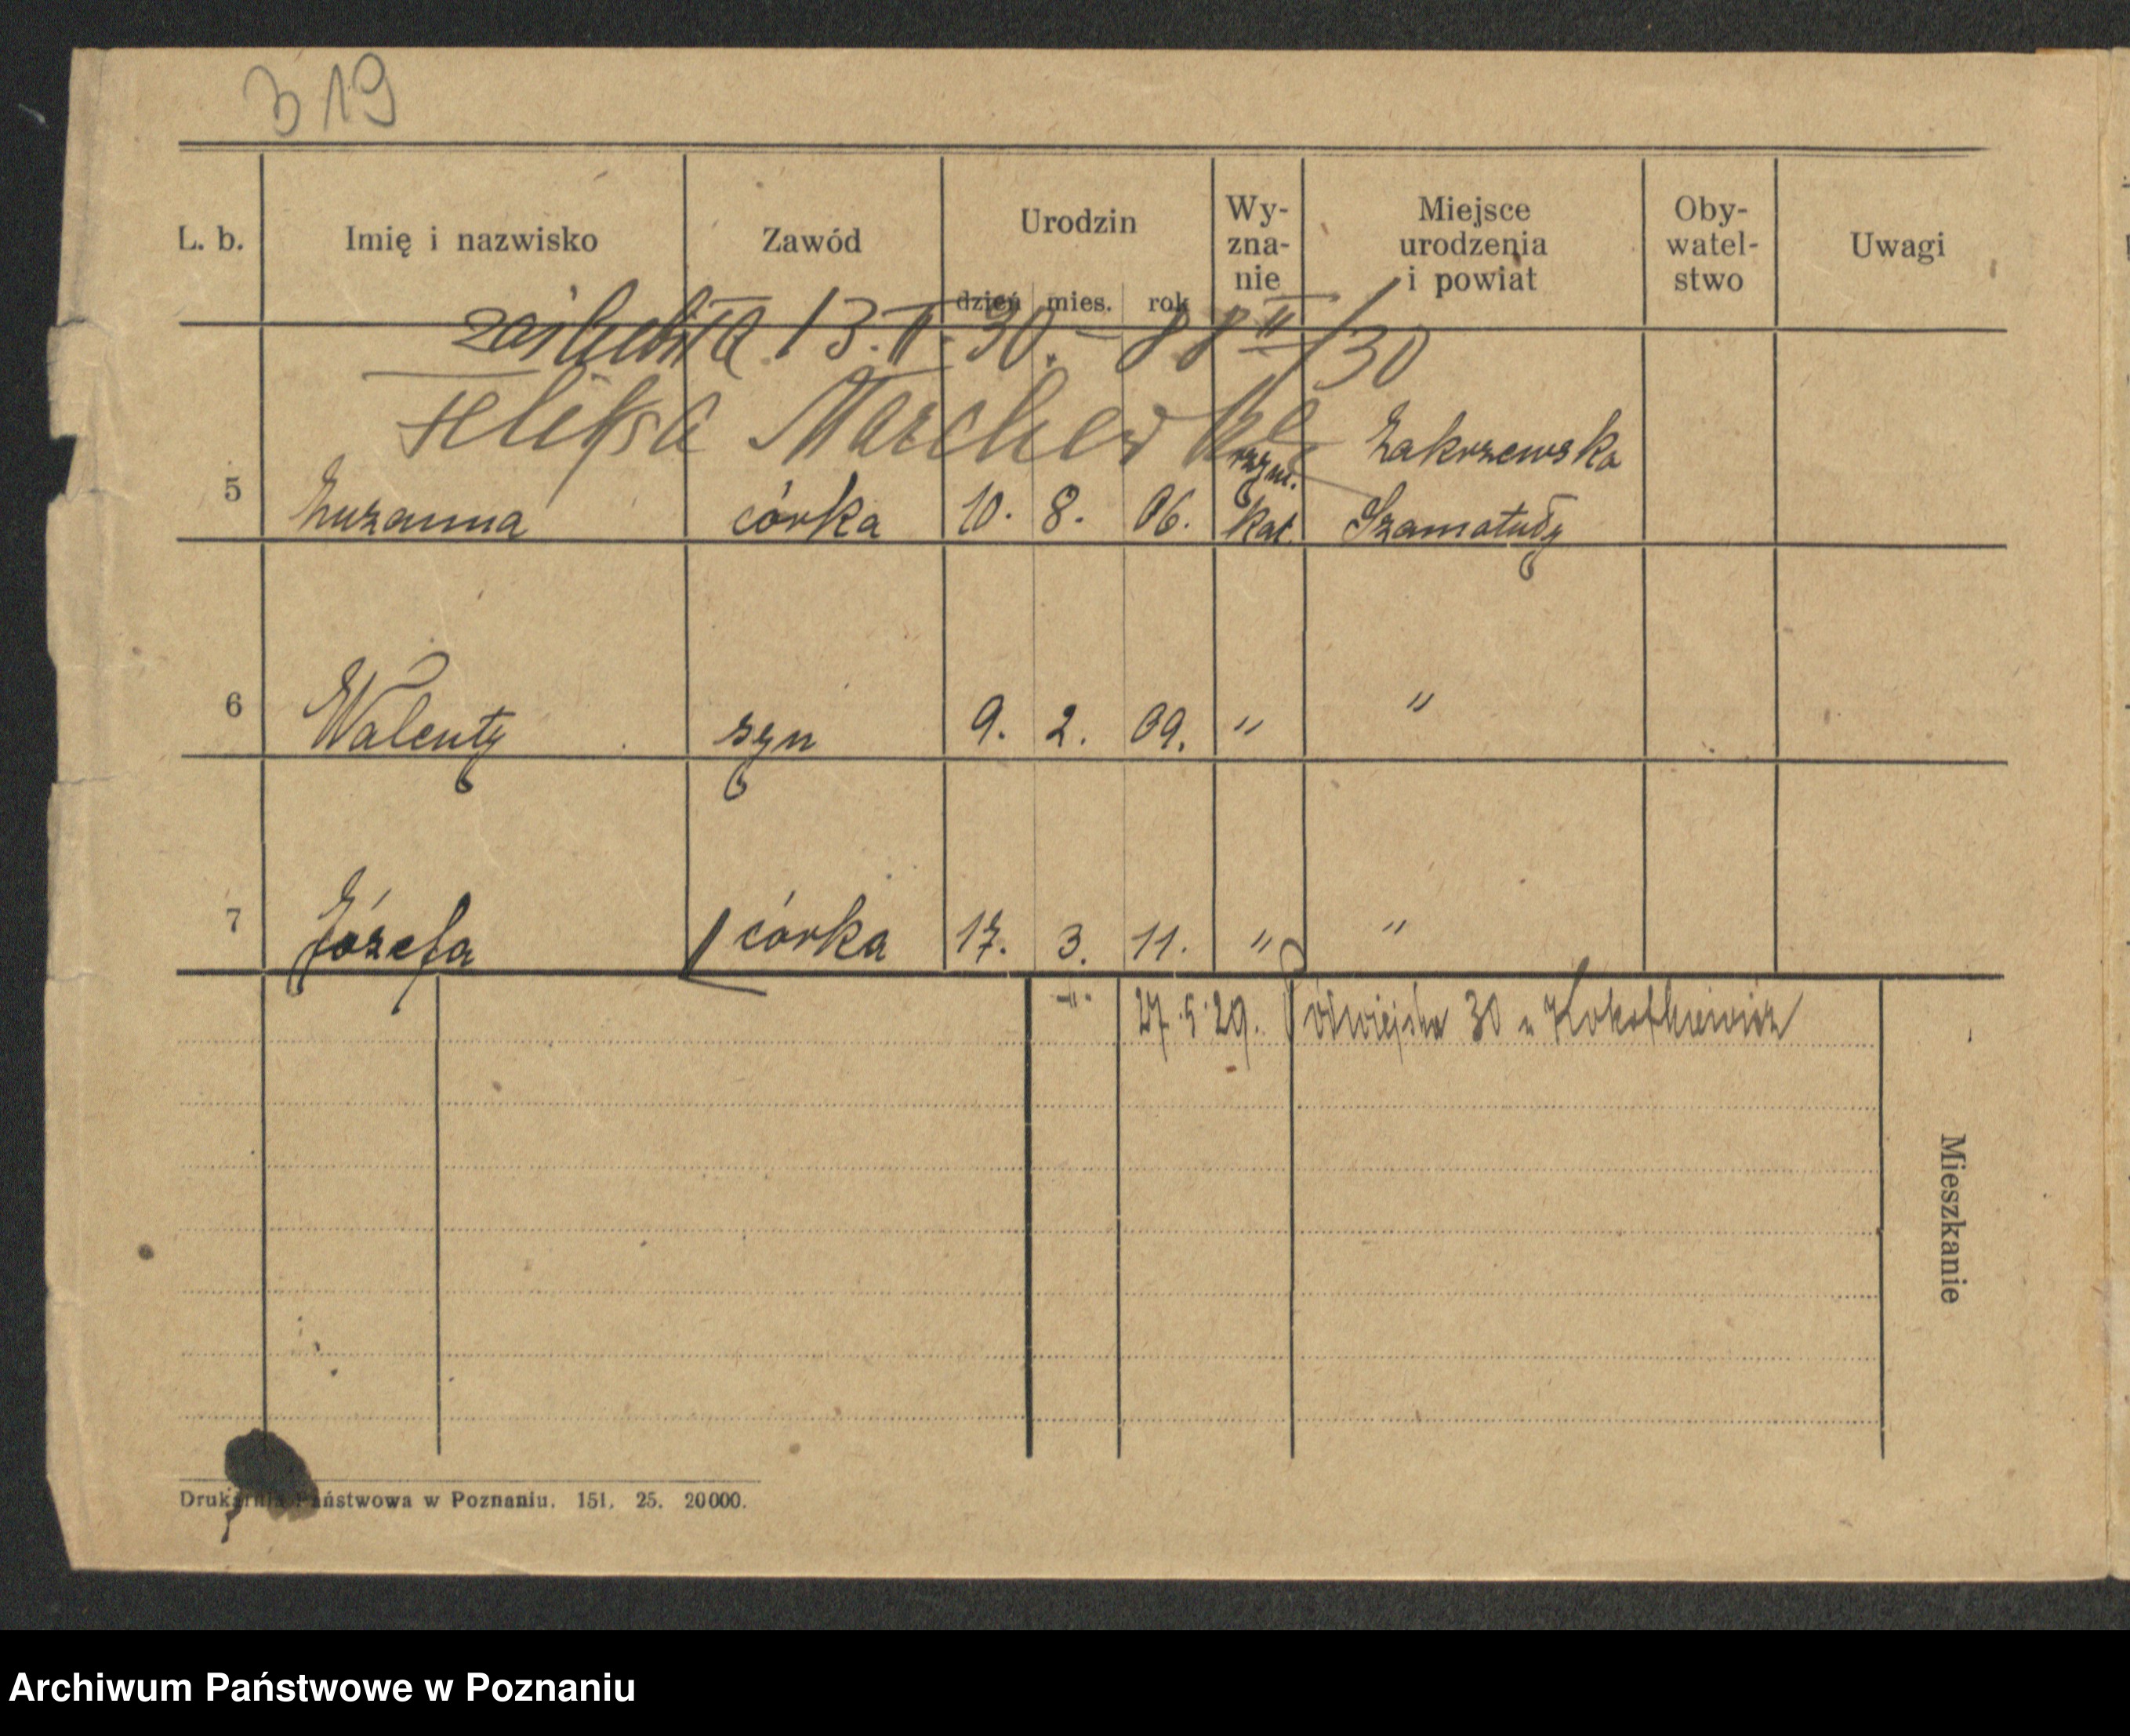 319
L. b. Imię i nazwisko Zawód Urodzin dzień mies. rok Wy-zna-nie Miejsce urodzenia i powiat Oby-watel-stwo Uwagi
zaślubiła 13.II.30. – II/30
Feliksa Marchewkę
Zakrzewska
5 Zuzanna córka 10. 8. 06. rzym. kat. Szamotuły
6 Walenty syn 9. 2. 09. " "
7 Józefa córka 17. 3. 11. " "
27.5.29. Półwiejska 30 u
Mieszkanie
Drukarnia Państwowa w Poznaniu. 151. 25. 20000.
Archiwum Państwowe w Poznaniu